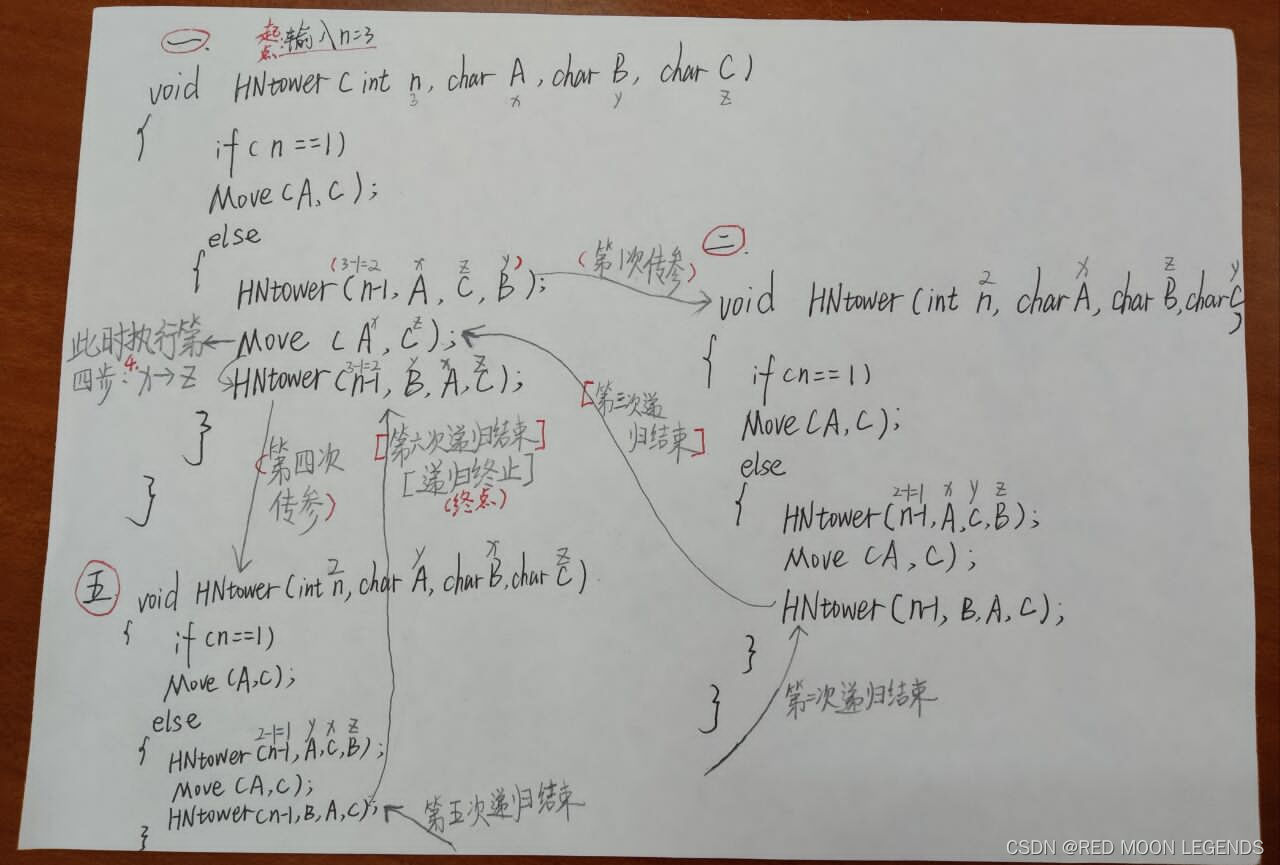 一. 起点:输入n=3
void HNtower (int n, char A, char B, char C)
3 x y z
{
if(n==1)
Move(A,C);
else
(3-1=2 x z y)
{ HNtower(n-1, A, C, B);
(第1次传参)
x z
Move (A, C);
此时执行第
四步: 4. x→z
3-1=2 y x z
HNtower(n-1, B, A, C);
}
}
(第四次
传参)
[第六次递归结束]
[递归终止]
(终点)
[第三次递
归结束]
二.
2 x z y
void HNtower(int n, char A, char B, char C)
{
if(n==1)
Move(A,C);
else
2-1=1 x y z
{ HNtower(n-1,A,C,B);
Move (A,C);
HNtower(n-1, B,A,C);
}
}
第二次递归结束
五
2 y x z
void HNtower(int n, char A, char B, char C)
{ if(n==1)
Move(A,C);
else
2-1=1 y x z
{ HNtower(n-1,A,C,B);
Move(A,C);
HNtower(n-1,B,A,C);
}
第五次递归结束
CSDN @RED MOON LEGENDS